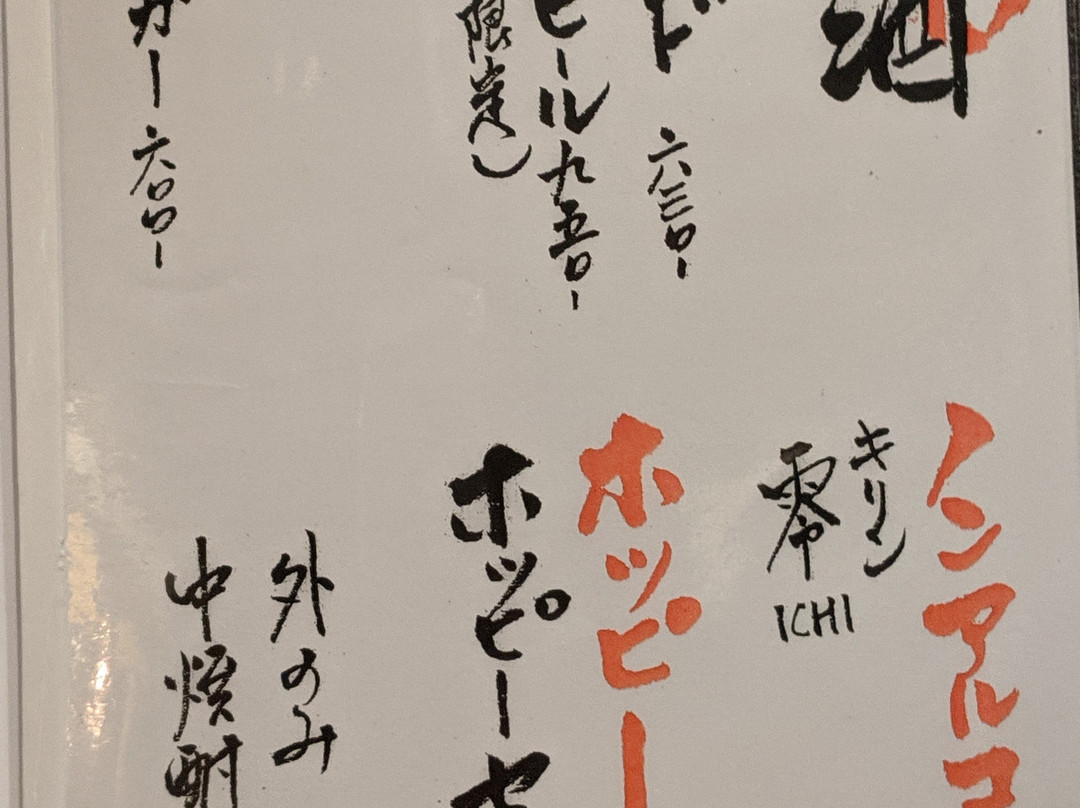 酒
ド 六三〇ー
ビール九五〇ー
限定)
ガー 六〇〇ー
ノンアルコ
キリン
零
ICHI
ホッピー
ホッピーセ
外のみ
中焼酎